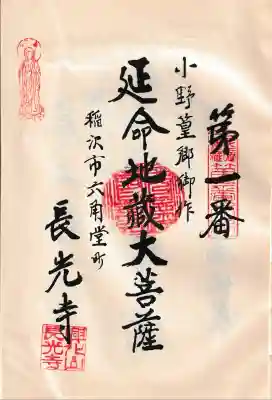 第一番
小野篁卿御作
延命地蔵大菩薩
稲沢市六角堂町
長光寺
長光寺